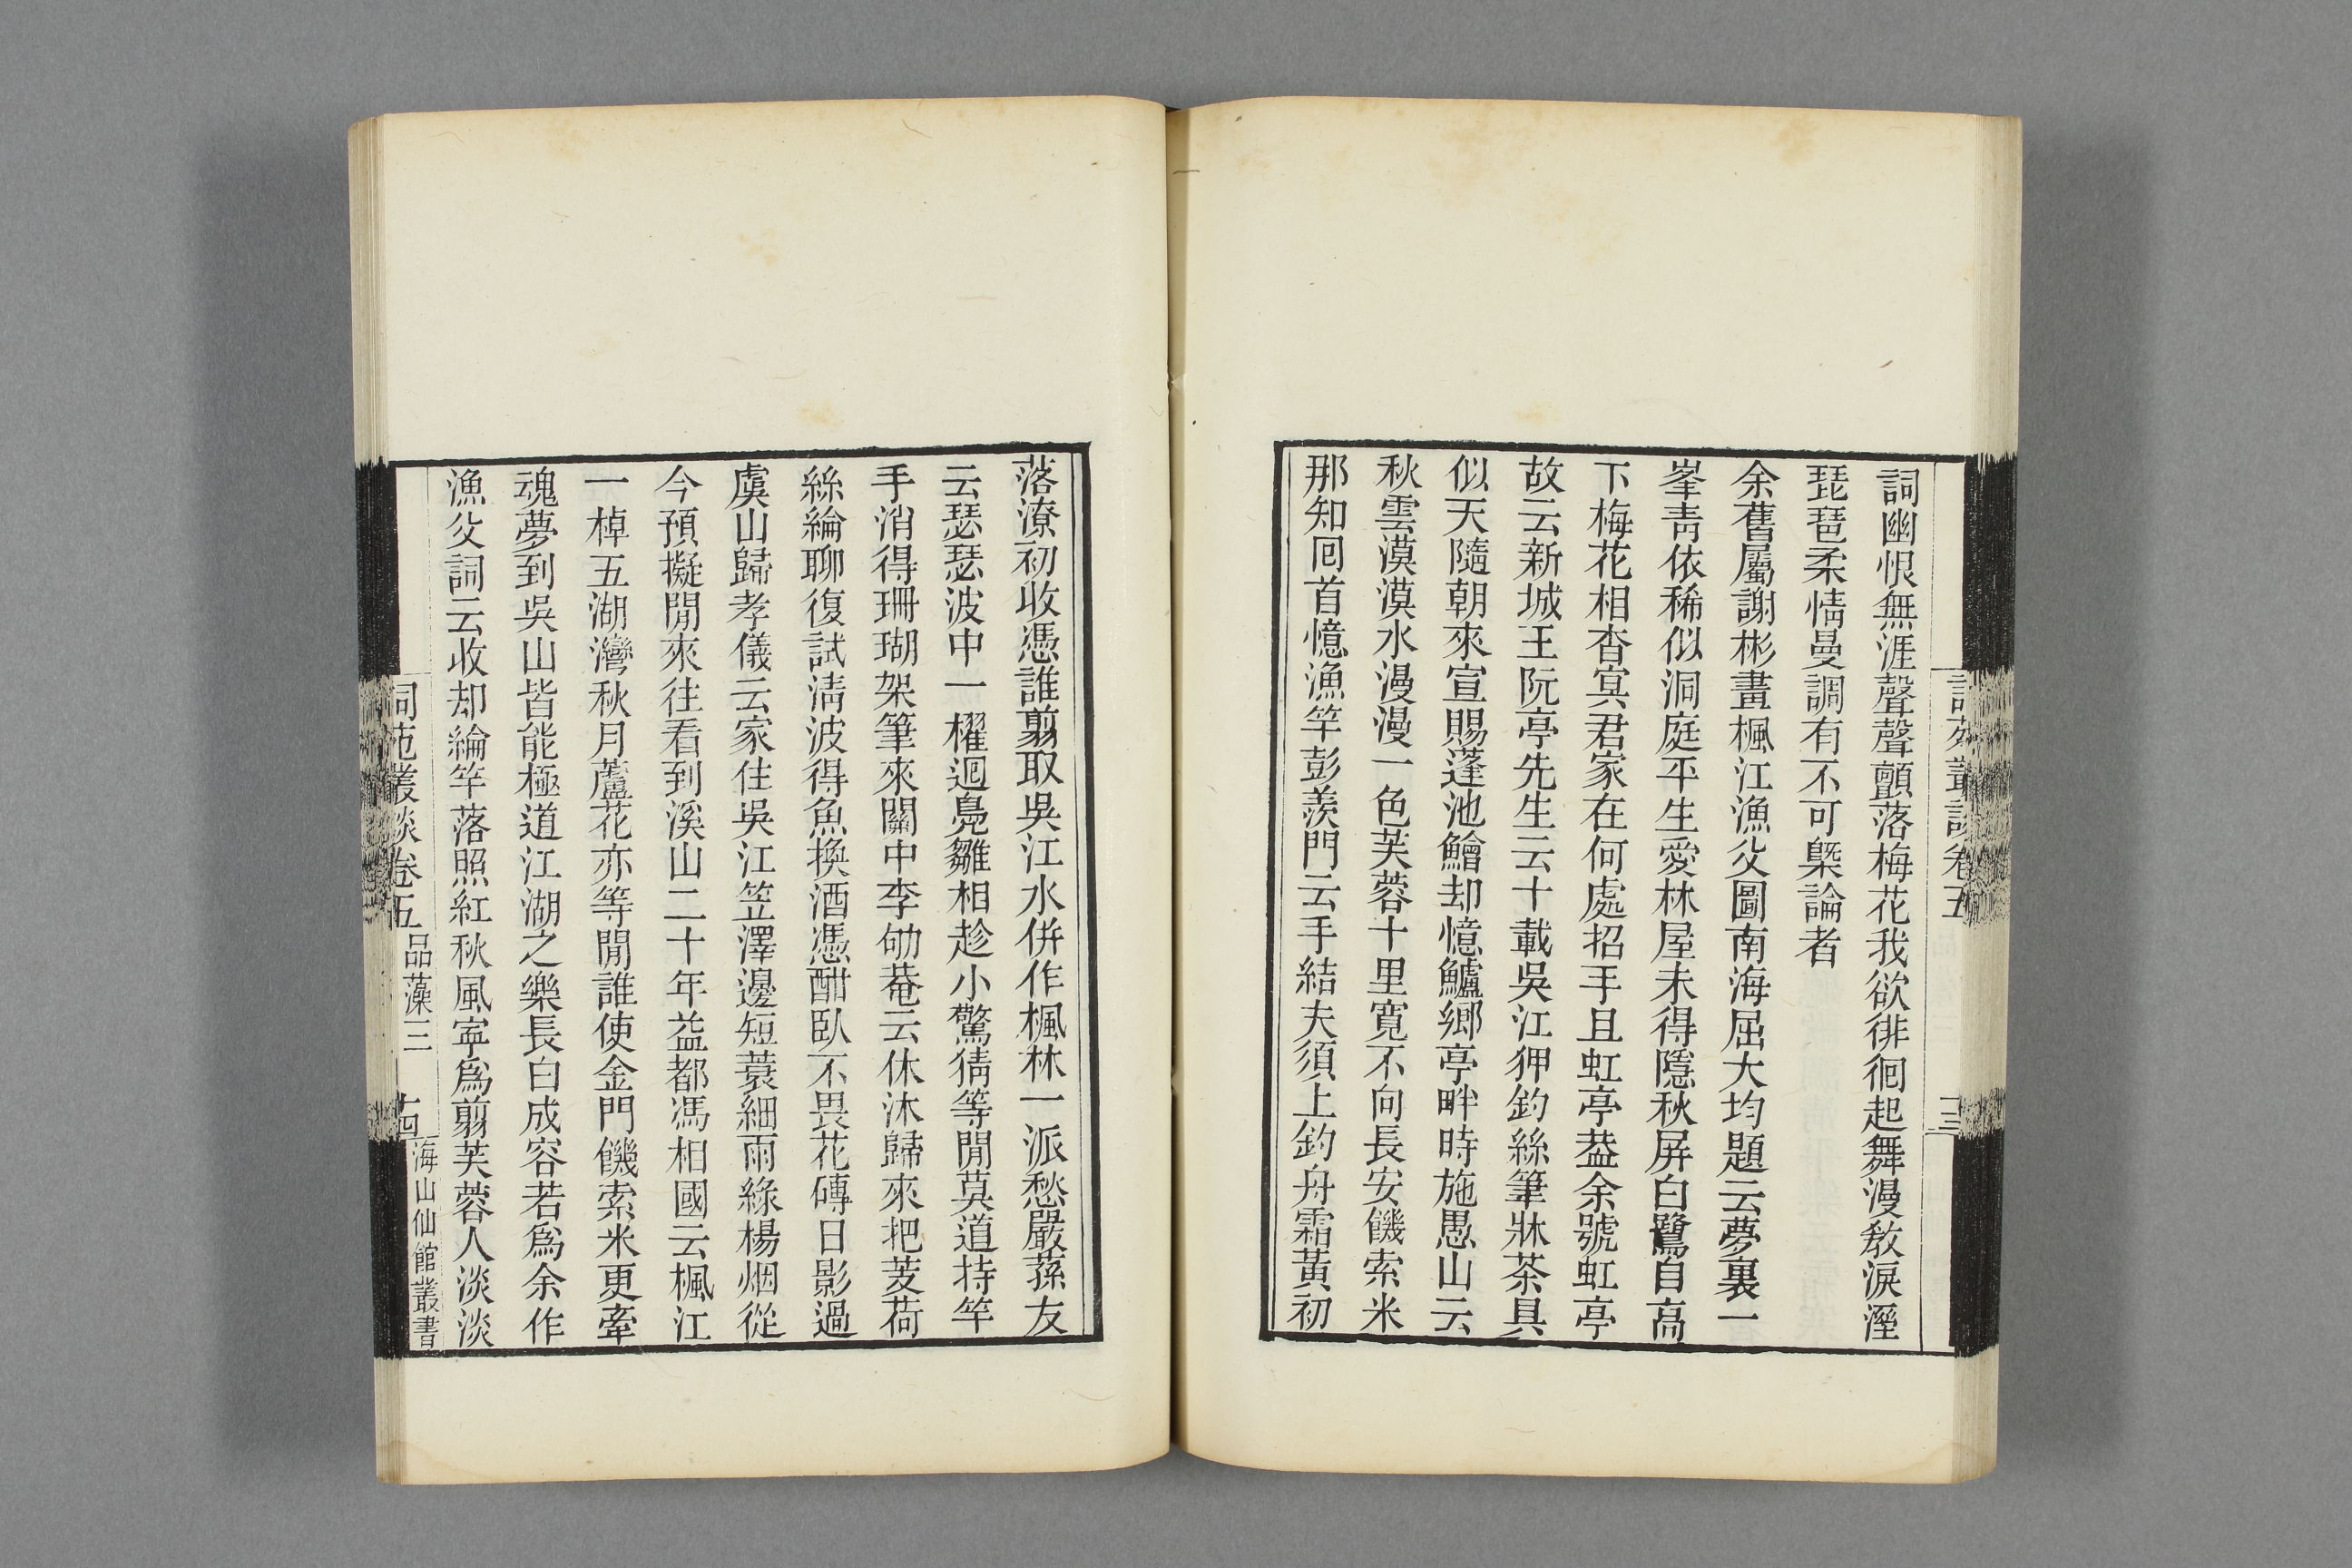 詞苑叢談卷五
十三
詞幽恨無涯聲聲顫落梅花我欲徘徊起舞漫敎淚溼
琵琶柔情曼調有不可槩論者
余舊屬謝彬畫楓江漁父圖南海屈大均題云夢裏一
峯靑依稀似洞庭平生愛林屋未得隱秋屏白鷺自高
下梅花相杳冥君家在何處招手且虹亭葢余號虹亭
故云新城王阮亭先生云十載吳江狎釣絲筆牀茶具
似天隨朝來宣賜蓬池鱠却憶鱸鄉亭畔時施愚山云
秋雲漠漠水漫漫一色芙蓉十里寬不向長安饑索米
那知回首憶漁竿彭羨門云手結夫須上釣舟霜黃初
落潦初收憑誰翦取吳江水併作楓林一派愁嚴蓀友
云瑟瑟波中一櫂迴鳧雛相趁小驚猜等閒莫道持竿
手消得珊瑚架筆來關中李劬菴云休沐歸來把芰荷
絲綸聊復試淸波得魚換酒憑酣臥不畏花磚日影過
虞山歸孝儀云家住吳江笠澤邊短蓑細雨綠楊烟從
今預擬閒來往看到溪山二十年益都馮相國云楓江
一棹五湖灣秋月蘆花亦等閒誰使金門饑索米更牽
魂夢到吳山皆能極道江湖之樂長白成容若爲余作
漁父詞云收却綸竿落照紅秋風寧爲翦芙蓉人淡淡
詞苑叢談卷五
品藻三
十四
海山仙館叢書